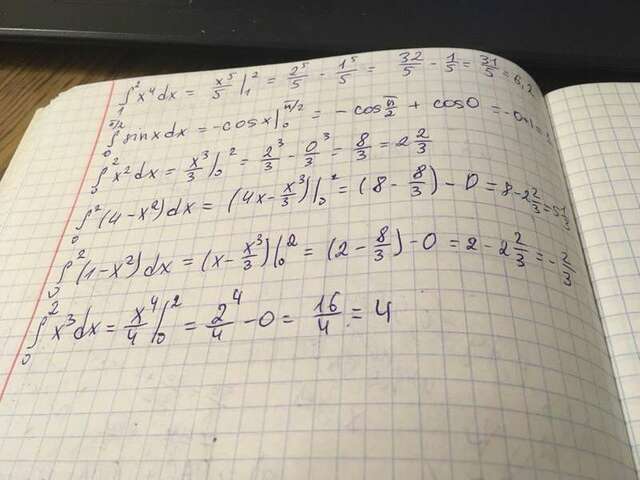 ∫₁² x⁴ dx = x⁵/5 |₁² = 2⁵/5 - 1⁵/5 = 32/5 - 1/5 = 31/5 = 6,2
∫₀^(π/2) sin x dx = -cos x |₀^(π/2) = -cos π/2 + cos 0 = -0+1 =
∫₀² x² dx = x³/3 |₀² = 2³/3 - 0³/3 = 8/3 = 2 2/3
∫₀² (4-x²) dx = (4x - x³/3) |₀² = (8 - 8/3) - 0 = 8 - 2 2/3 = 5 1/3
∫₀² (1-x²) dx = (x - x³/3) |₀² = (2 - 8/3) - 0 = 2 - 2 2/3 = - 2/3
∫₀² x³ dx = x⁴/4 |₀² = 2⁴/4 - 0 = 16/4 = 4